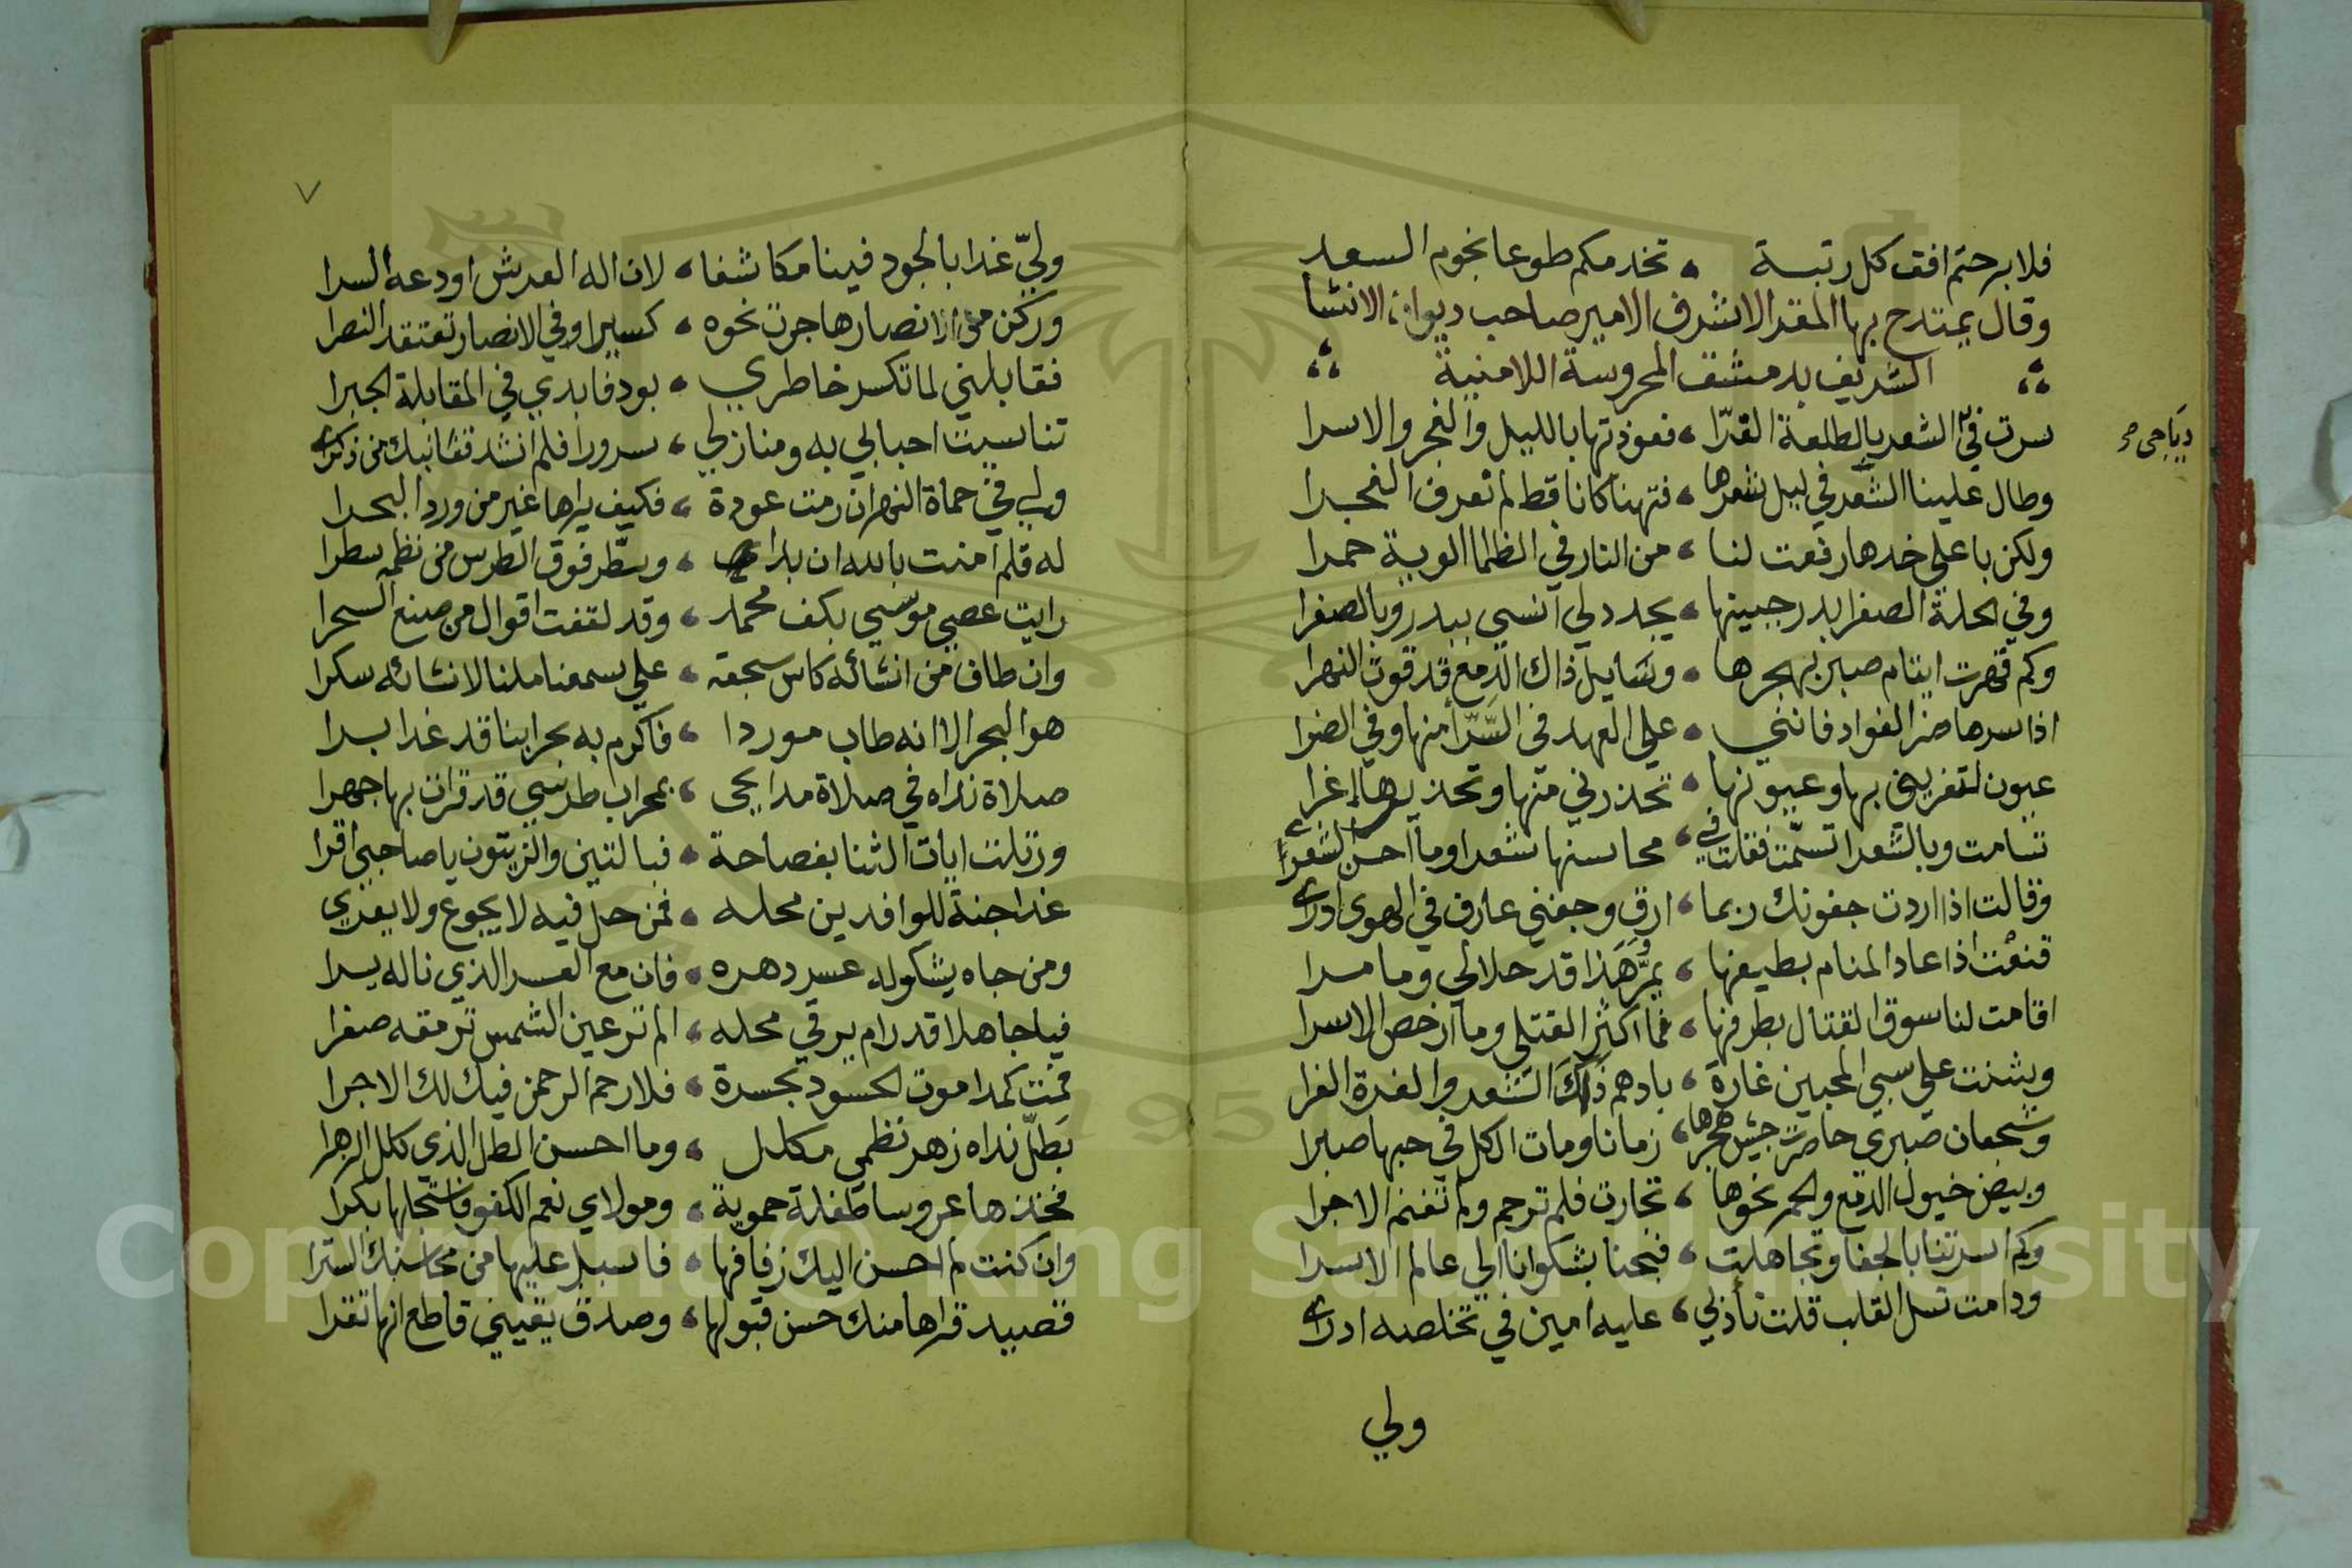 فلا برحتم افق كل رتبة ، تخدمكم طوعا نجوم السعد
وقال يمتدح بها المقر الاشرف الامير صاحب ديوان الانشا
الشريف بدمشق المحروسة اللامنية
سرت في الشعر بالطلعة الغرّا ، فعوذتها بالليل والفجر والاسرا
دياجي
وطال علينا الشعر في ليل شعرها ، فتهنا كانا قط لم نعرف الفجرا
ولكن باعلى خدها رفعت لنا ، من النار في الظلما الوية حمرا
وفي الحلة الصفرا بدر جبينها ، يجدد لي انسي ببدر وبالصفرا
وكم قهرت ايتام صبر بهجرها ، وسايل ذاك الدمع قد قوت النهرا
اذا سرها ضر الفواد فانني ، علي العهد في السّرّا منها وفي الضرا
عيون لتغريني بها وعيونها ، تحذرني منها وتحذيرها اغرا
تسامت وبالشعرا تسمّت فقلت في ، محاسنها شعرا وما احسن الشعرا
وقالت اذا اردت جفونك ربما ، ارق وجفني عارف في الهوى ادرى
قنعت اذا عاد المنام بطيفها ، يمرّ وهذا قد حلا لي وما مرا
اقامت لنا سوق القتال بطرفها ، فما اكثر القتلى وما ارخص الاسرا
وشنت علي سبي المحبين غارة ، بادهم ذاك الشعر والغرة الغرا
وشجعان صبري حاصرت جيش هجرها ، زمانا ومات الكل في حبها صبرا
وبيض خيول الدمع والحمر نحوها ، تجارت فلم ترحم ولم تغنم الاجرا
وكم اسرتنا بالجفا وتجاهلت ، فبحنا بشكوانا الي عالم الاسرا
ودامت تسل القلب قلت تأدبي ، عليه امين في تخلصه ادرى
ولي
٧
وليّ غدا بالجود فينا مكاشفا ، لان اله العرش اودعه السرا
وركن من انصارها جرت نحوه ، كسيرا وفي الانصار تعتقد النصرا
فقابلني لما تكسر خاطري ، بود فابدي في المقابلة الجبرا
تناسيت احبابي به ومنازلي ، سرورا فلم انشد قفا نبك من ذكرى
ولي في حماة النهر ان رمت عودة ، فكيف يراها غير من ورد البحرا
له قلم امنت بالله ان بدا ، وسطّر فوق الطرس من نظمه سطرا
رايت عصي موسي بكف محمد ، وقد لقفت اقوال من صنع السحرا
وان طاف من انشائه كاس سجعة ، علي سمعنا ملنا لانشائه سكرا
هو البحر الا انه طاب موردا ، فاكرم به بحرا بنا قد غدا برا
صلاة نداه في صلاة مدايحي ، بمحراب طرسي قد قرات بها جهرا
ورتلت ايات الثنا بفصاحة ، فبالتين والزيتون يا صاحبي اقرا
غدا جنة للوافدين محله ، فمن حل فيه لا يجوع ولا يعري
ومن جاه يشكو له عسر دهره ، فان مع العسر الذي ناله يسرا
فيا جاهلا قد رام يرقي محله ، الم تر عين الشمس ترمقه صغرا
فمت كمدا موت الحسود بحسرة ، فلا رحم الرحمن فيك لك الاجرا
بطلّ نداه زهر نظمي مكلل ، وما احسن الطل الذي كلل الزهرا
فخذها عروسا طفلة حموية ، ومولاي نعم الكفو فاستجلها بكرا
وان كنت لم احسن اليك زفافها ، فاسبل عليها من محاسنك السترا
قصيد قراها منك حسن قبولها ، وصدق يقيني قاطع انها تقرا